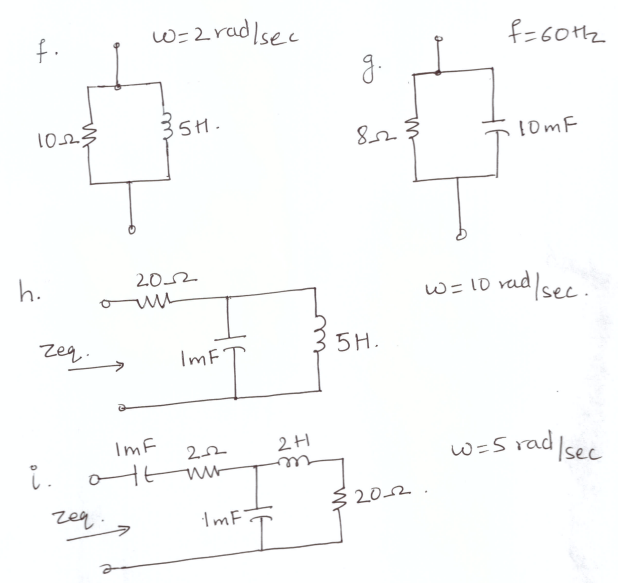 f.
ω=2 rad/sec
10Ω
5H.
g.
f=60Hz
8Ω
10mF
h.
20Ω
ω=10 rad/sec.
Zeq.
1mF
5H.
i.
1mF
2Ω
2H
ω=5 rad/sec
Zeq.
1mF
20Ω.